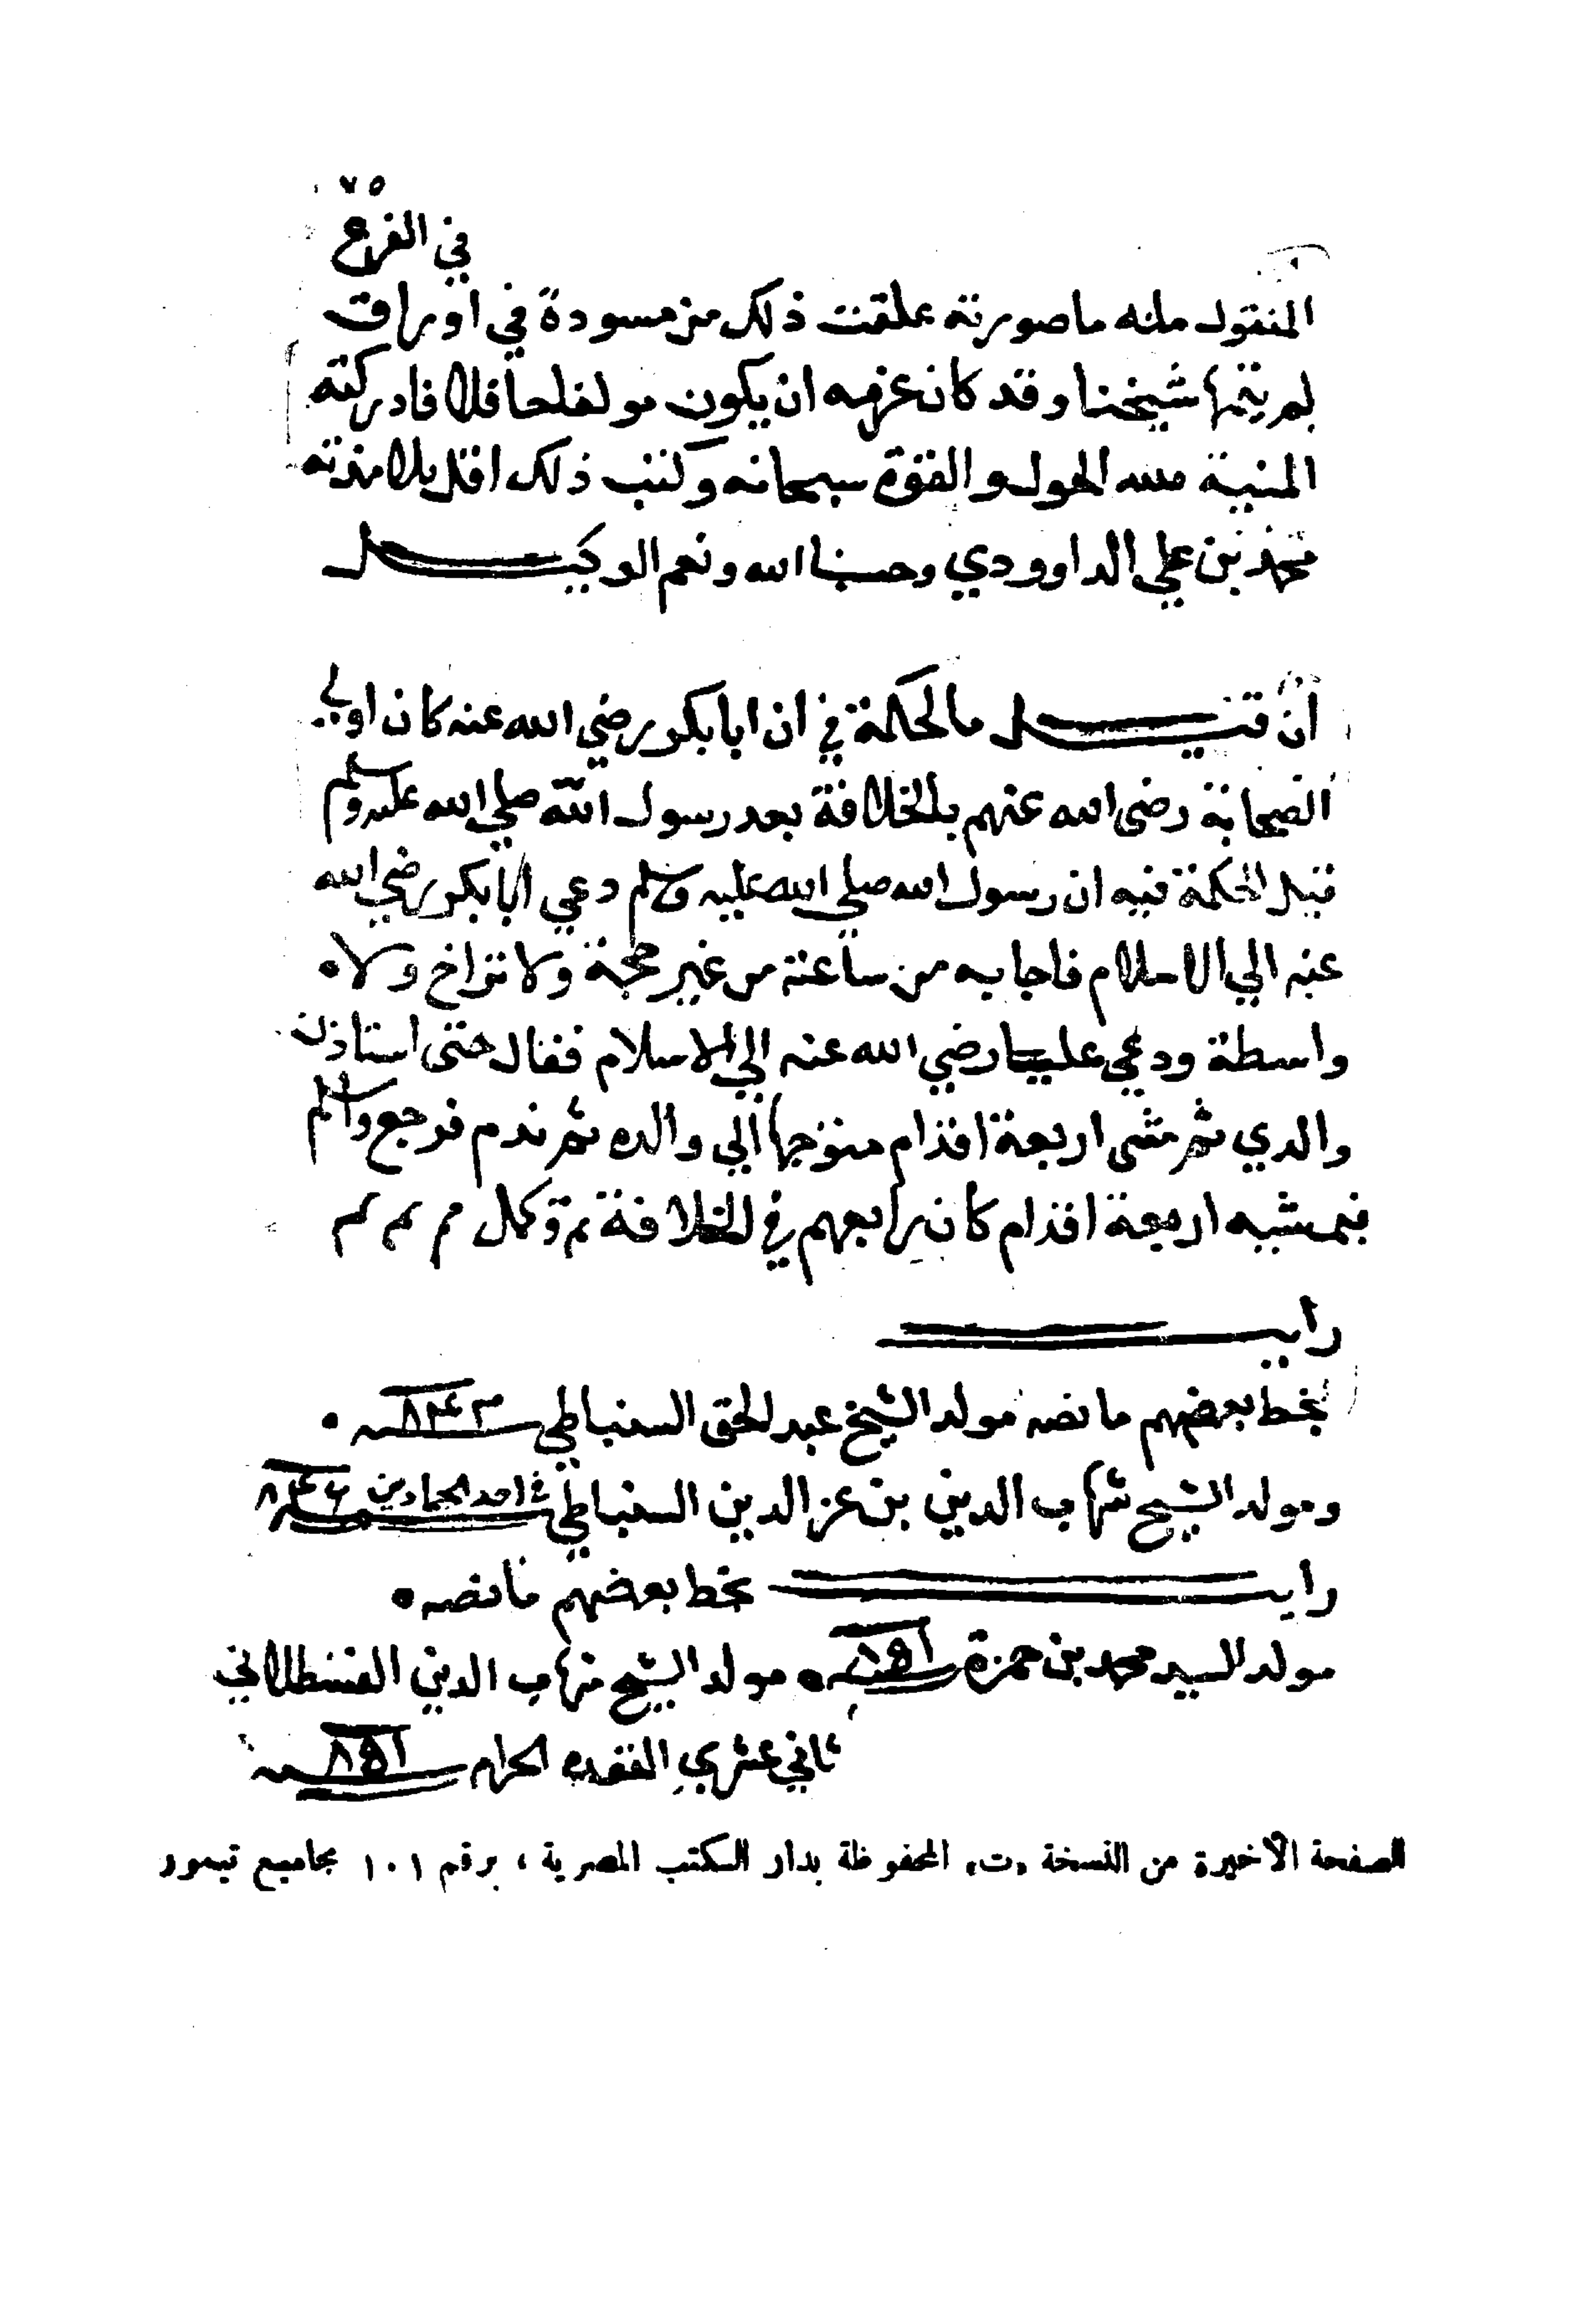 ٧٥
في الفرع
المنقول منه ما صورته علقت ذلك من مسودة في اوراق
لم يتمها شيخنا وقد كان عزمه ان يكون مولفا حافلا فادركته
المنية فلله الحول والقوة سبحانه وكتب ذلك اقل تلامذته
محمد بن علي الداوودي وحسبنا الله ونعم الوكيل
ان قيل ما الحكمة في ان ابا بكر رضي الله عنه كان اولي
الصحابة رضى الله عنهم بالخلافة بعد رسول الله صلي الله عليه وسلم
قيل الحكمة فيه ان رسول الله صلي الله عليه وسلم دعي ابا بكر رضي الله
عنه الي الاسلام فاجابه من ساعته من غير حجة ولا تراخ ولا
واسطة ودعي عليا رضي الله عنه الي الاسلام فقال حتى استاذن
والدي ثم مشى اربعة اقدام متوجها الي والده ثم ندم فرجع واسلم
فبمشيه اربعة اقدام كان رابعهم في الخلافة تم وكمل م م م
رايت
بخط بعضهم ما نصه مولد الشيخ عبد الحق السنباطي سنه ٨٤٣
ومولد الشيخ شهاب الدين بن عز الدين السنباطي في احد الجمادين سنه
رايت بخط بعضهم ما نصه
مولد السيد محمد بن حمزة سنه ٨٥١ مولد الشيخ شهاب الدين القسطلاني
ثاني عشري القعده الحرام سنه ٨٥١
الصفحة الأخيرة من النسخة «ت» المحفوظة بدار الكتب المصرية ، برقم ١٠١ مجاميع تيمور